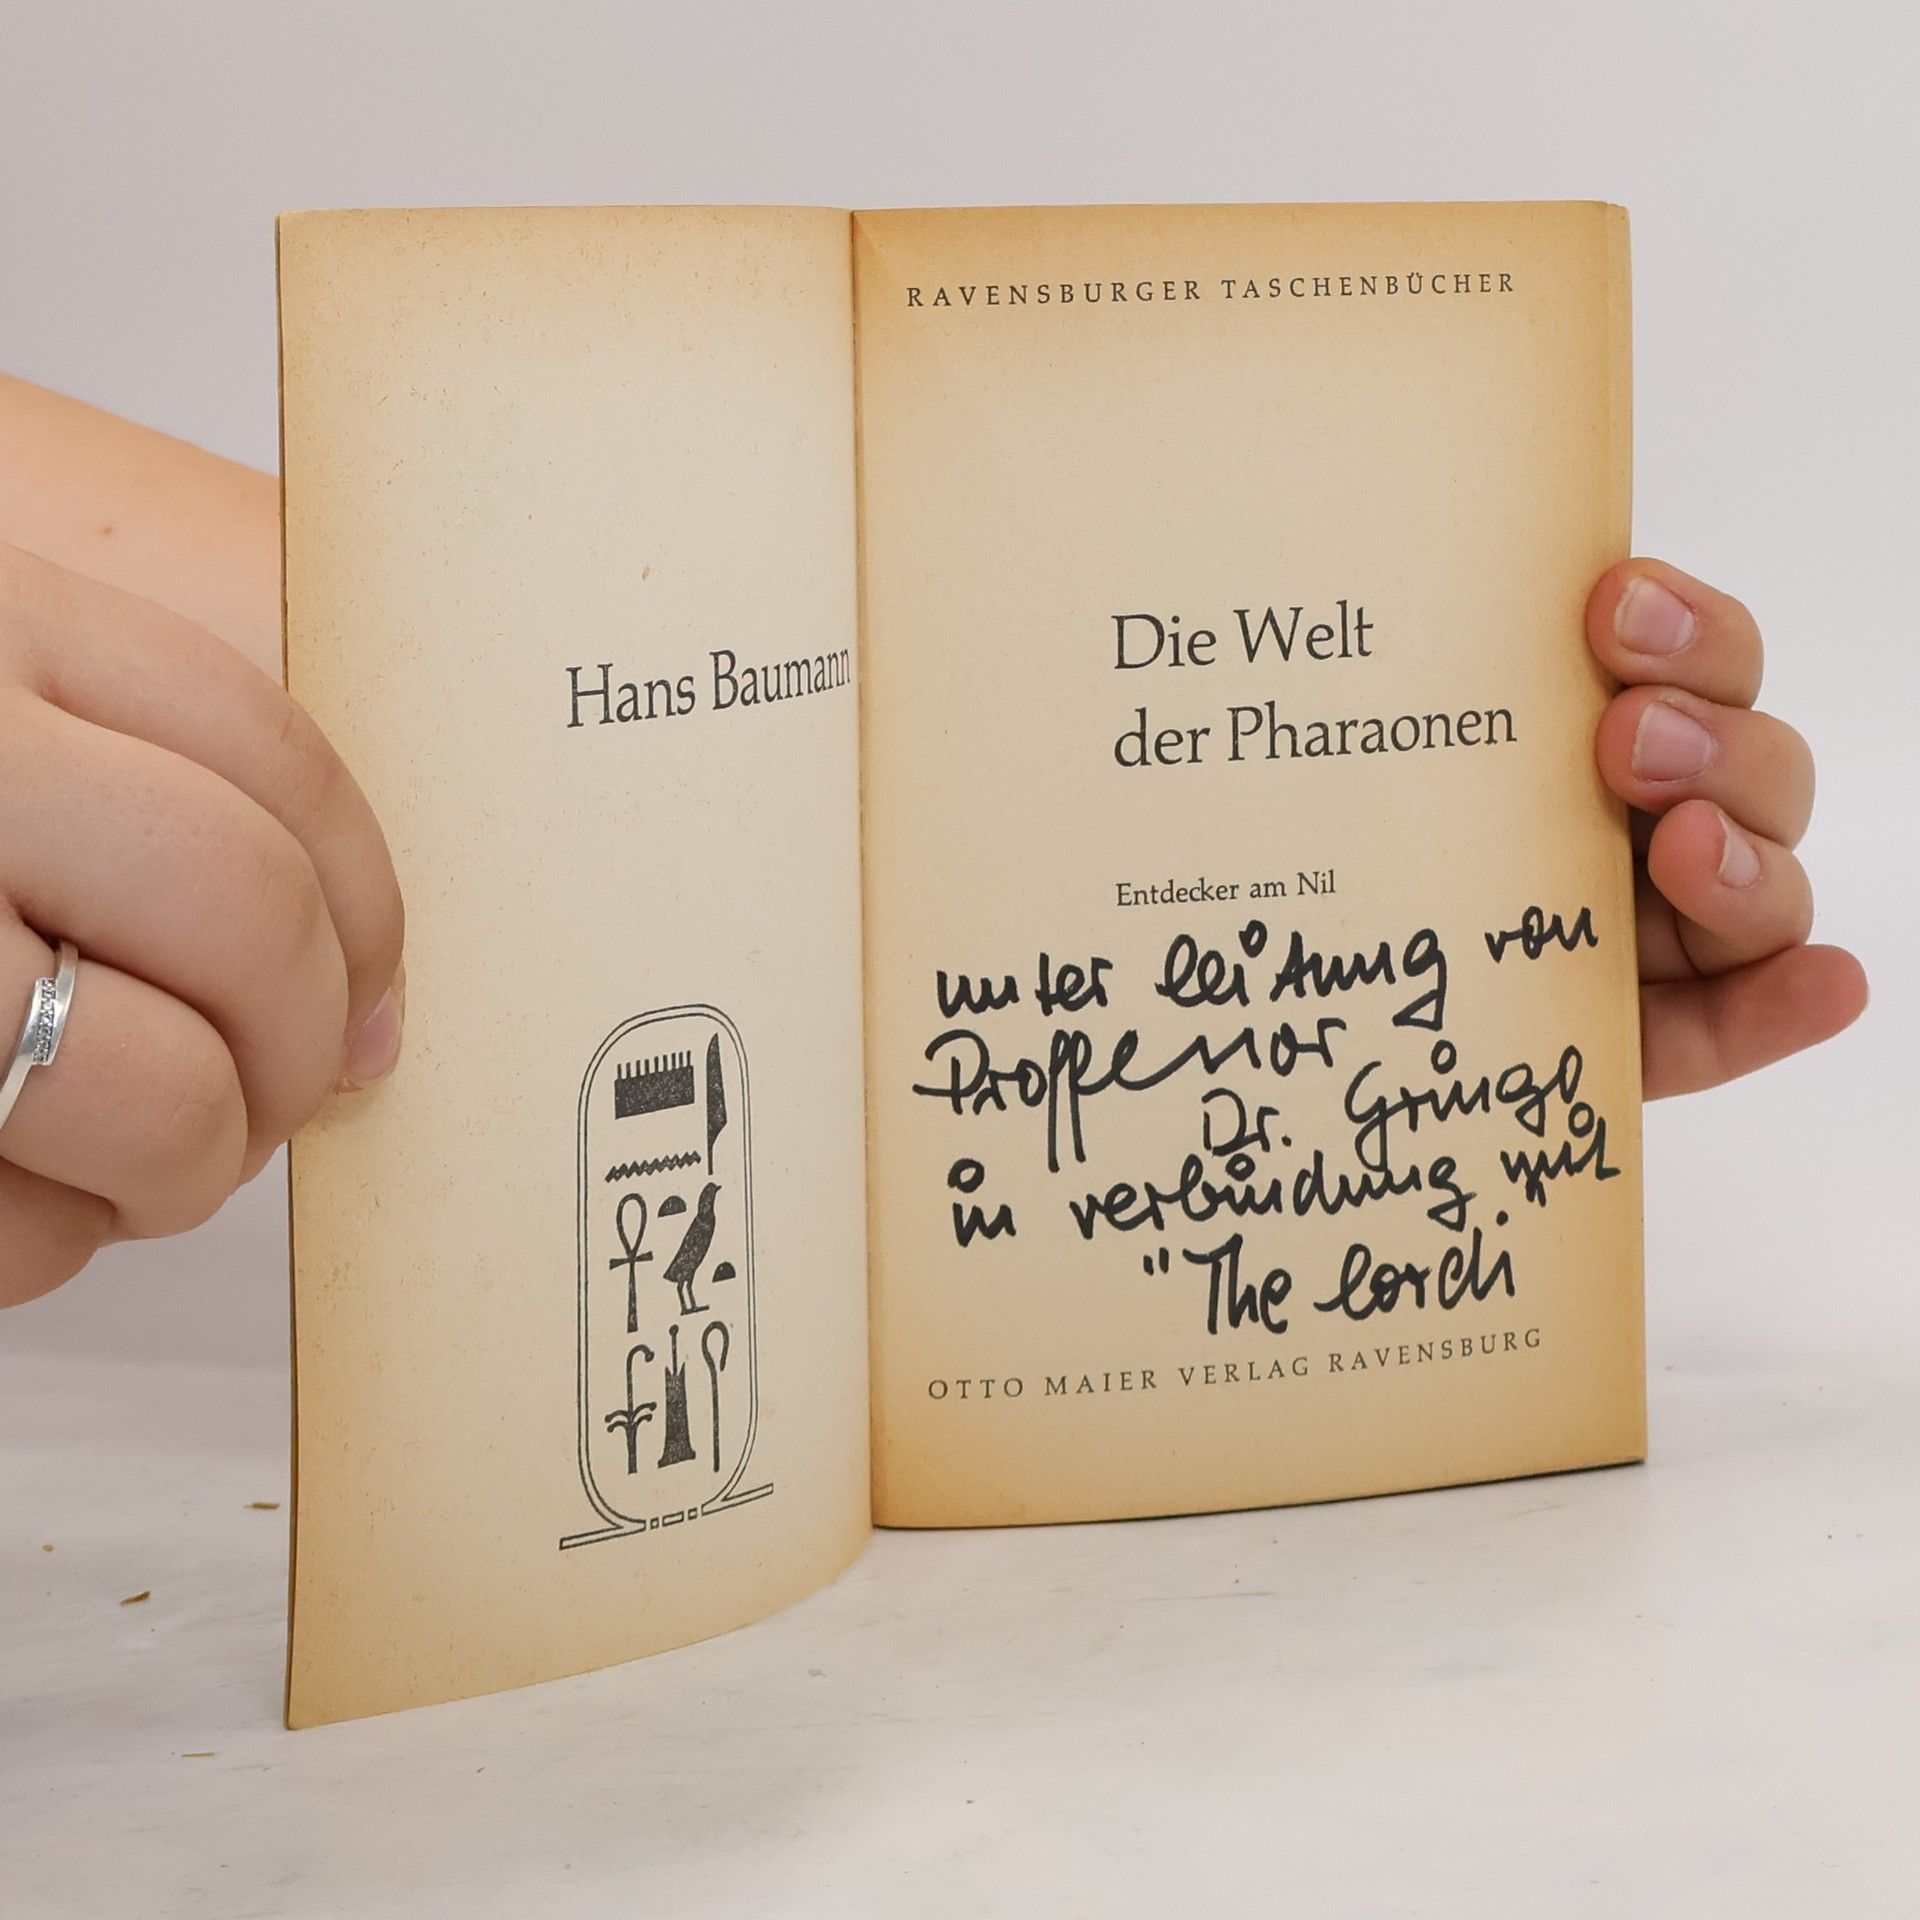 Hans Baumann
RAVENSBURGER TASCHENBÜCHER
Die Welt
der Pharaonen
Entdecker am Nil
unter leitung von
Proffessor
Dr. Gringo
in verbindung mit
"The lordi"
OTTO MAIER VERLAG RAVENSBURG